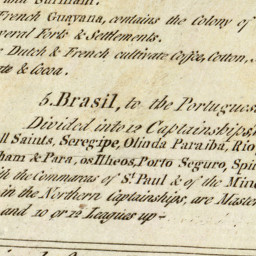 French Guayana, contains the Colony of
Forts & Settlements.
Dutch & French cultivate Coffee, Cotton,
& Cocoa.
5. Brasil, to the Portugues
Divided into 12 Captainships,
Saints, Seregipe, Olinda Paraiba, Rio
ham & Para, os Ilheos, Porto Seguro, Spi
the Commarcas of St. Paul & of the Mine
in the Northern Captainships, are Maste
and 10 or 12 Leagues up